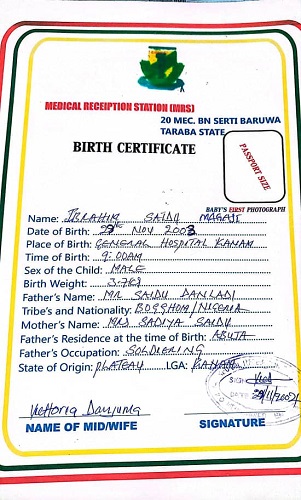 MEDICAL RECEIPTION STATION (MRS)
20 MEC. BN SERTI BARUWA
TARABA STATE
BIRTH CERTIFICATE
PASSPORT SIZE
BABY'S FIRST PHOTOGRAPH
Name: IBRAHIM SAIDU MAGAJI
Date of Birth: NOV 2003
Place of Birth: GENERAL HOSPITAL KANAM
Time of Birth: 9:00AM
Sex of the Child: MALE
Birth Weight: 3.7kg
Father's Name: MR SAIDU DANLADI
Tribe's and Nationality: BOGGHOM/NIGERIA
Mother's Name: MRS SADIYA SAIDU
Father's Residence at the time of Birth: ABUJA
Father's Occupation: SOLDIERING
State of Origin: PLATEAU LGA: KANAM
SIGN
DATE
Victoria Danjuma
NAME OF MID/WIFE
SIGNATURE